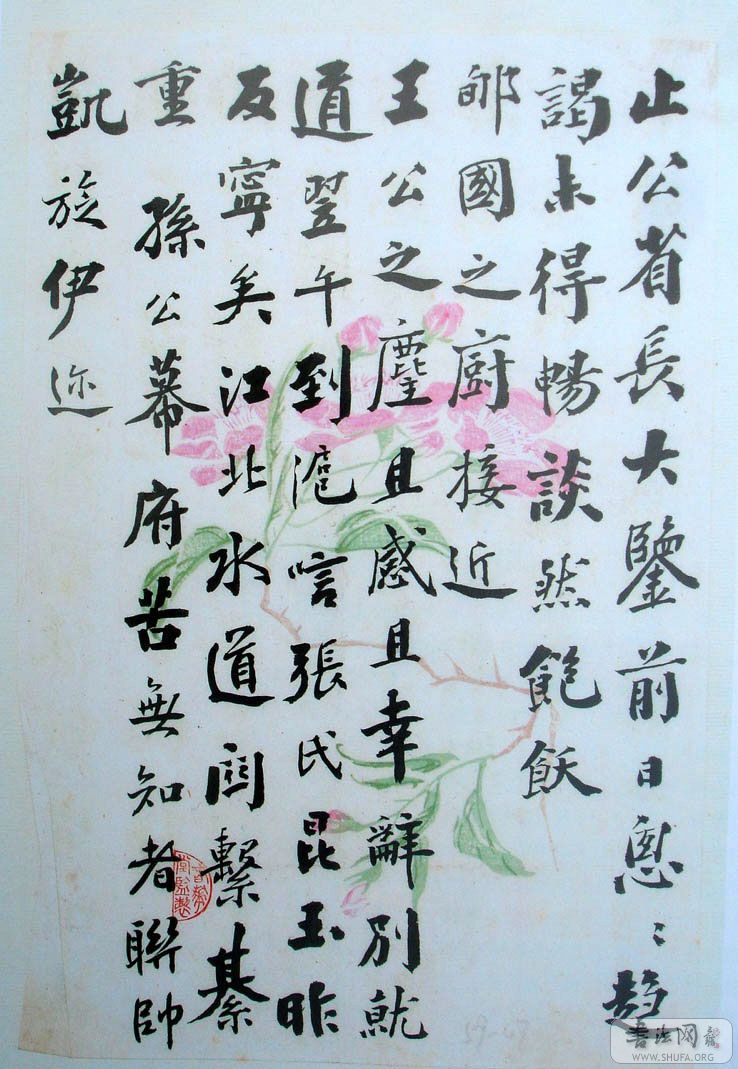 止公省長大鑒前日悤〻趨
謁未得暢談然飽飫
郇國之廚接近
王公之麈且感且幸辭別就
道翌午到滬唁張氏昆玉昨
反寧矣江北水道関繫綦
重 孫公幕府苦無知者聯帥
凱旋伊迩
书法网
WWW.SHUFA.ORG